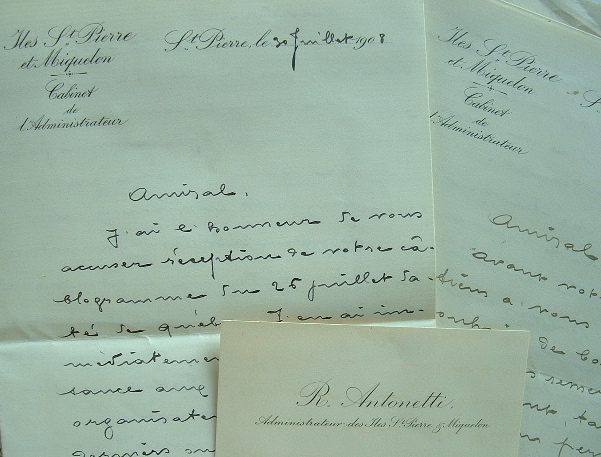 Iles St. Pierre
et Miquelon
Cabinet
de
l'Administrateur
St. Pierre, le 30 Juillet 1908
Amiral,
J'ai l'honneur de vous
accuser réception de votre câ-
blogramme du 26 juillet da-
té de Québ J'en ai im-
médiateme
sance aux
organisate
Iles St. Pierre
et Miquelon
Cabinet
de
l'Administrateur
S
Amiral
avant vot
tiens à vous
de
R. Antonetti.
Administrateur des Iles St. Pierre & Miquelon